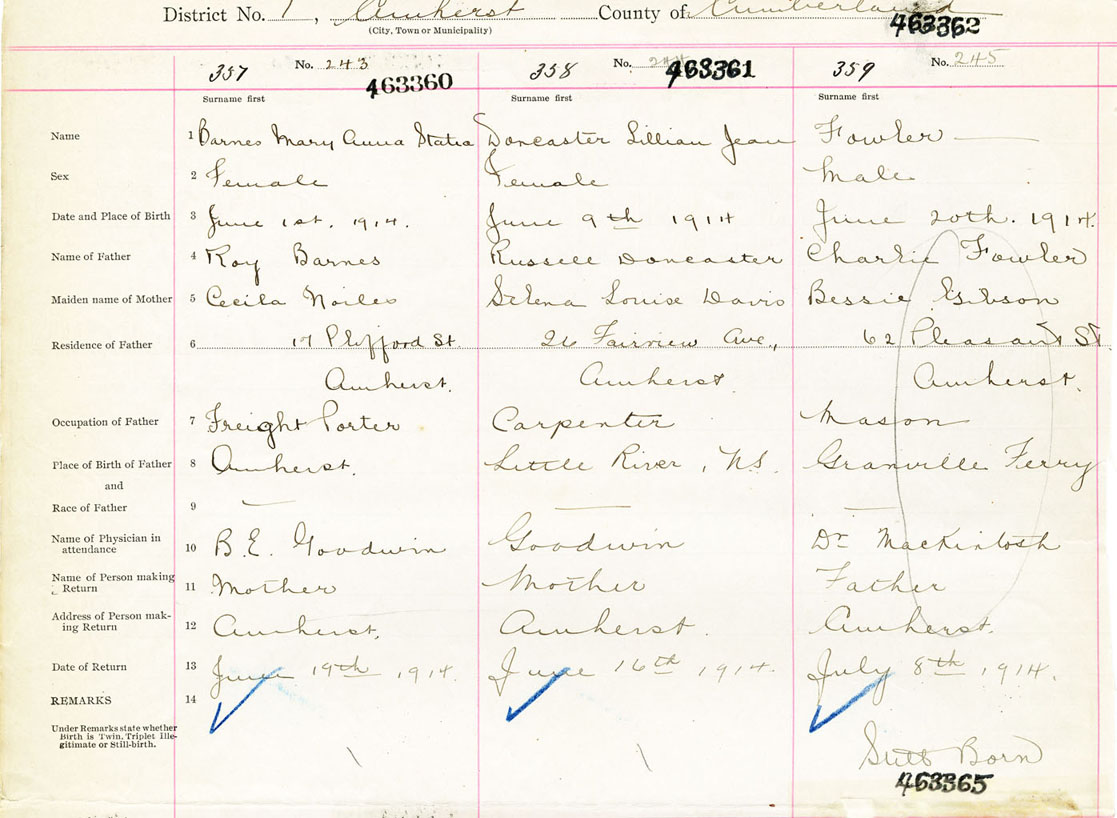 District No. 1, Amherst County of Cumberland
(City, Town or Municipality)
463362
357 No. 243 463360 358 No. 463361 359 No. 245
Surname first Surname first Surname first
Name 1 Barnes Mary Anna Statia Doncaster Lillian Jean Fowler —
Sex 2 Female Female Male
Date and Place of Birth 3 June 1st, 1914. June 9th 1914 June 20th. 1914.
Name of Father 4 Roy Barnes Russell Doncaster Charlie Fowler
Maiden name of Mother 5 Cecila Noiles Selena Louise Davis Bessie Gibson
Residence of Father 6 17 St. 26 Fairview Ave., 62 Pleasant St.
Amherst. Amherst. Amherst.
Occupation of Father 7 Freight Porter Carpenter Mason
Place of Birth of Father 8 Amherst. Little River, N.S. Granville Ferry
and
Race of Father 9 — — —
Name of Physician in 10 B.E. Goodwin Goodwin Dr Mackintosh
attendance
Name of Person making 11 Mother Mother Father
Return
Address of Person mak- 12 Amherst. Amherst. Amherst.
ing Return
Date of Return 13 June 19th, 1914. June 16th, 1914. July 8th, 1914.
REMARKS 14
Under Remarks state whether
Birth is Twin, Triplet Ille-
gitimate or Still-birth.
Still Born
463365